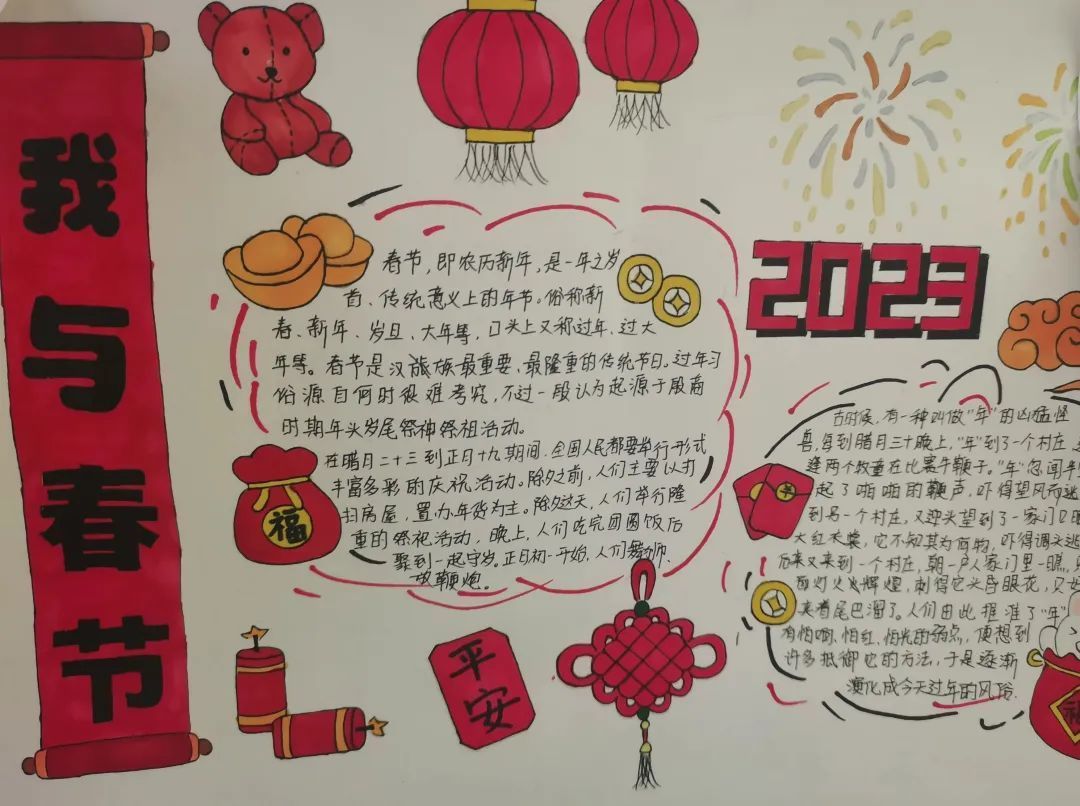 我与春节
春节,即农历新年,是一年之岁
首、传统意义上的年节。俗称新
春、新年、岁旦、大年等,口头上又称过年、过大
年等。春节是汉族族最重要、最隆重的传统节日。过年习
俗源自何时很难考究,不过一段认为起源于殷商
时期年头岁尾祭神祭祖活动。
在腊月二十三到正月十九期间,全国人民都要举行形式
丰富多彩的庆祝活动。除夕之前,人们主要以打
扫房屋,置办年货为主。除夕这天,人们举行隆
重的祭祀活动,晚上,人们吃完团圆饭后
聚到一起守岁。正月初一开始,人们舞狮、
放鞭炮。
福
平安
2023
古时候,有一种叫做“年”的凶猛怪
兽,每到腊月三十晚上,“年”到了一个村庄
逢两个牧童在比赛牛鞭子。“年”忽闻半
起了啪啪的鞭声,吓得望风而逃
到另一个村庄,又迎头望到了一家门口
大红衣裳,它不知其为何物,吓得调头逃
后来又来到一个村庄,朝一户人家门里一瞧,只
面灯火辉煌,刺得它头昏眼花,只好
夹着尾巴溜了。人们由此摧准了“年”
有怕响、怕红、怕光的弱点,便想到
许多抵御它的方法,于是逐渐
演化成今天过年的风俗.
福